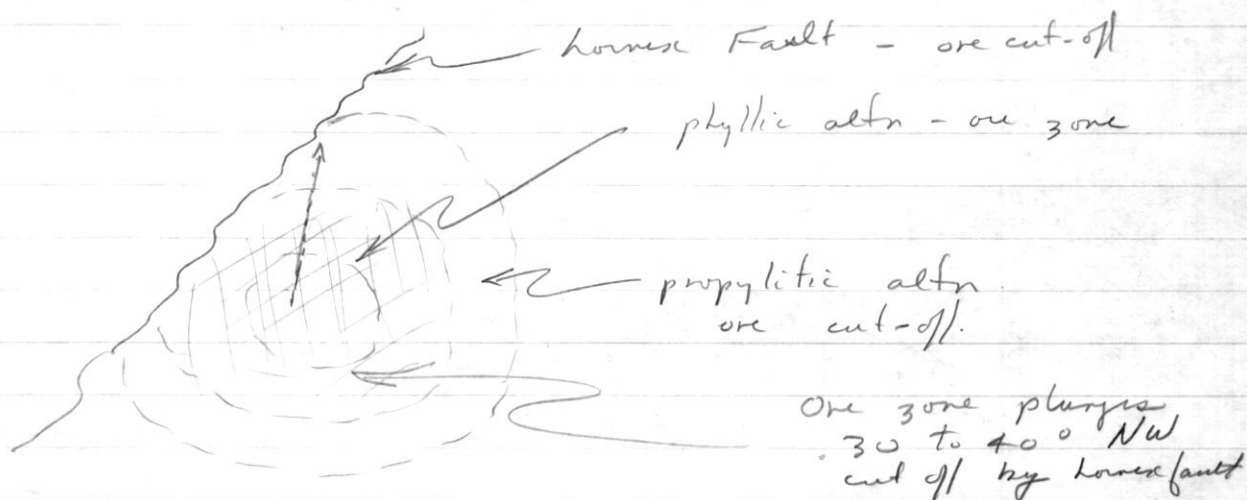 Lornex Fault - ore cut-off
phyllic altn - ore zone
propylitic altn.
ore cut-off.
Ore zone plunges
30 to 40° NW
cut off by Lornex fault